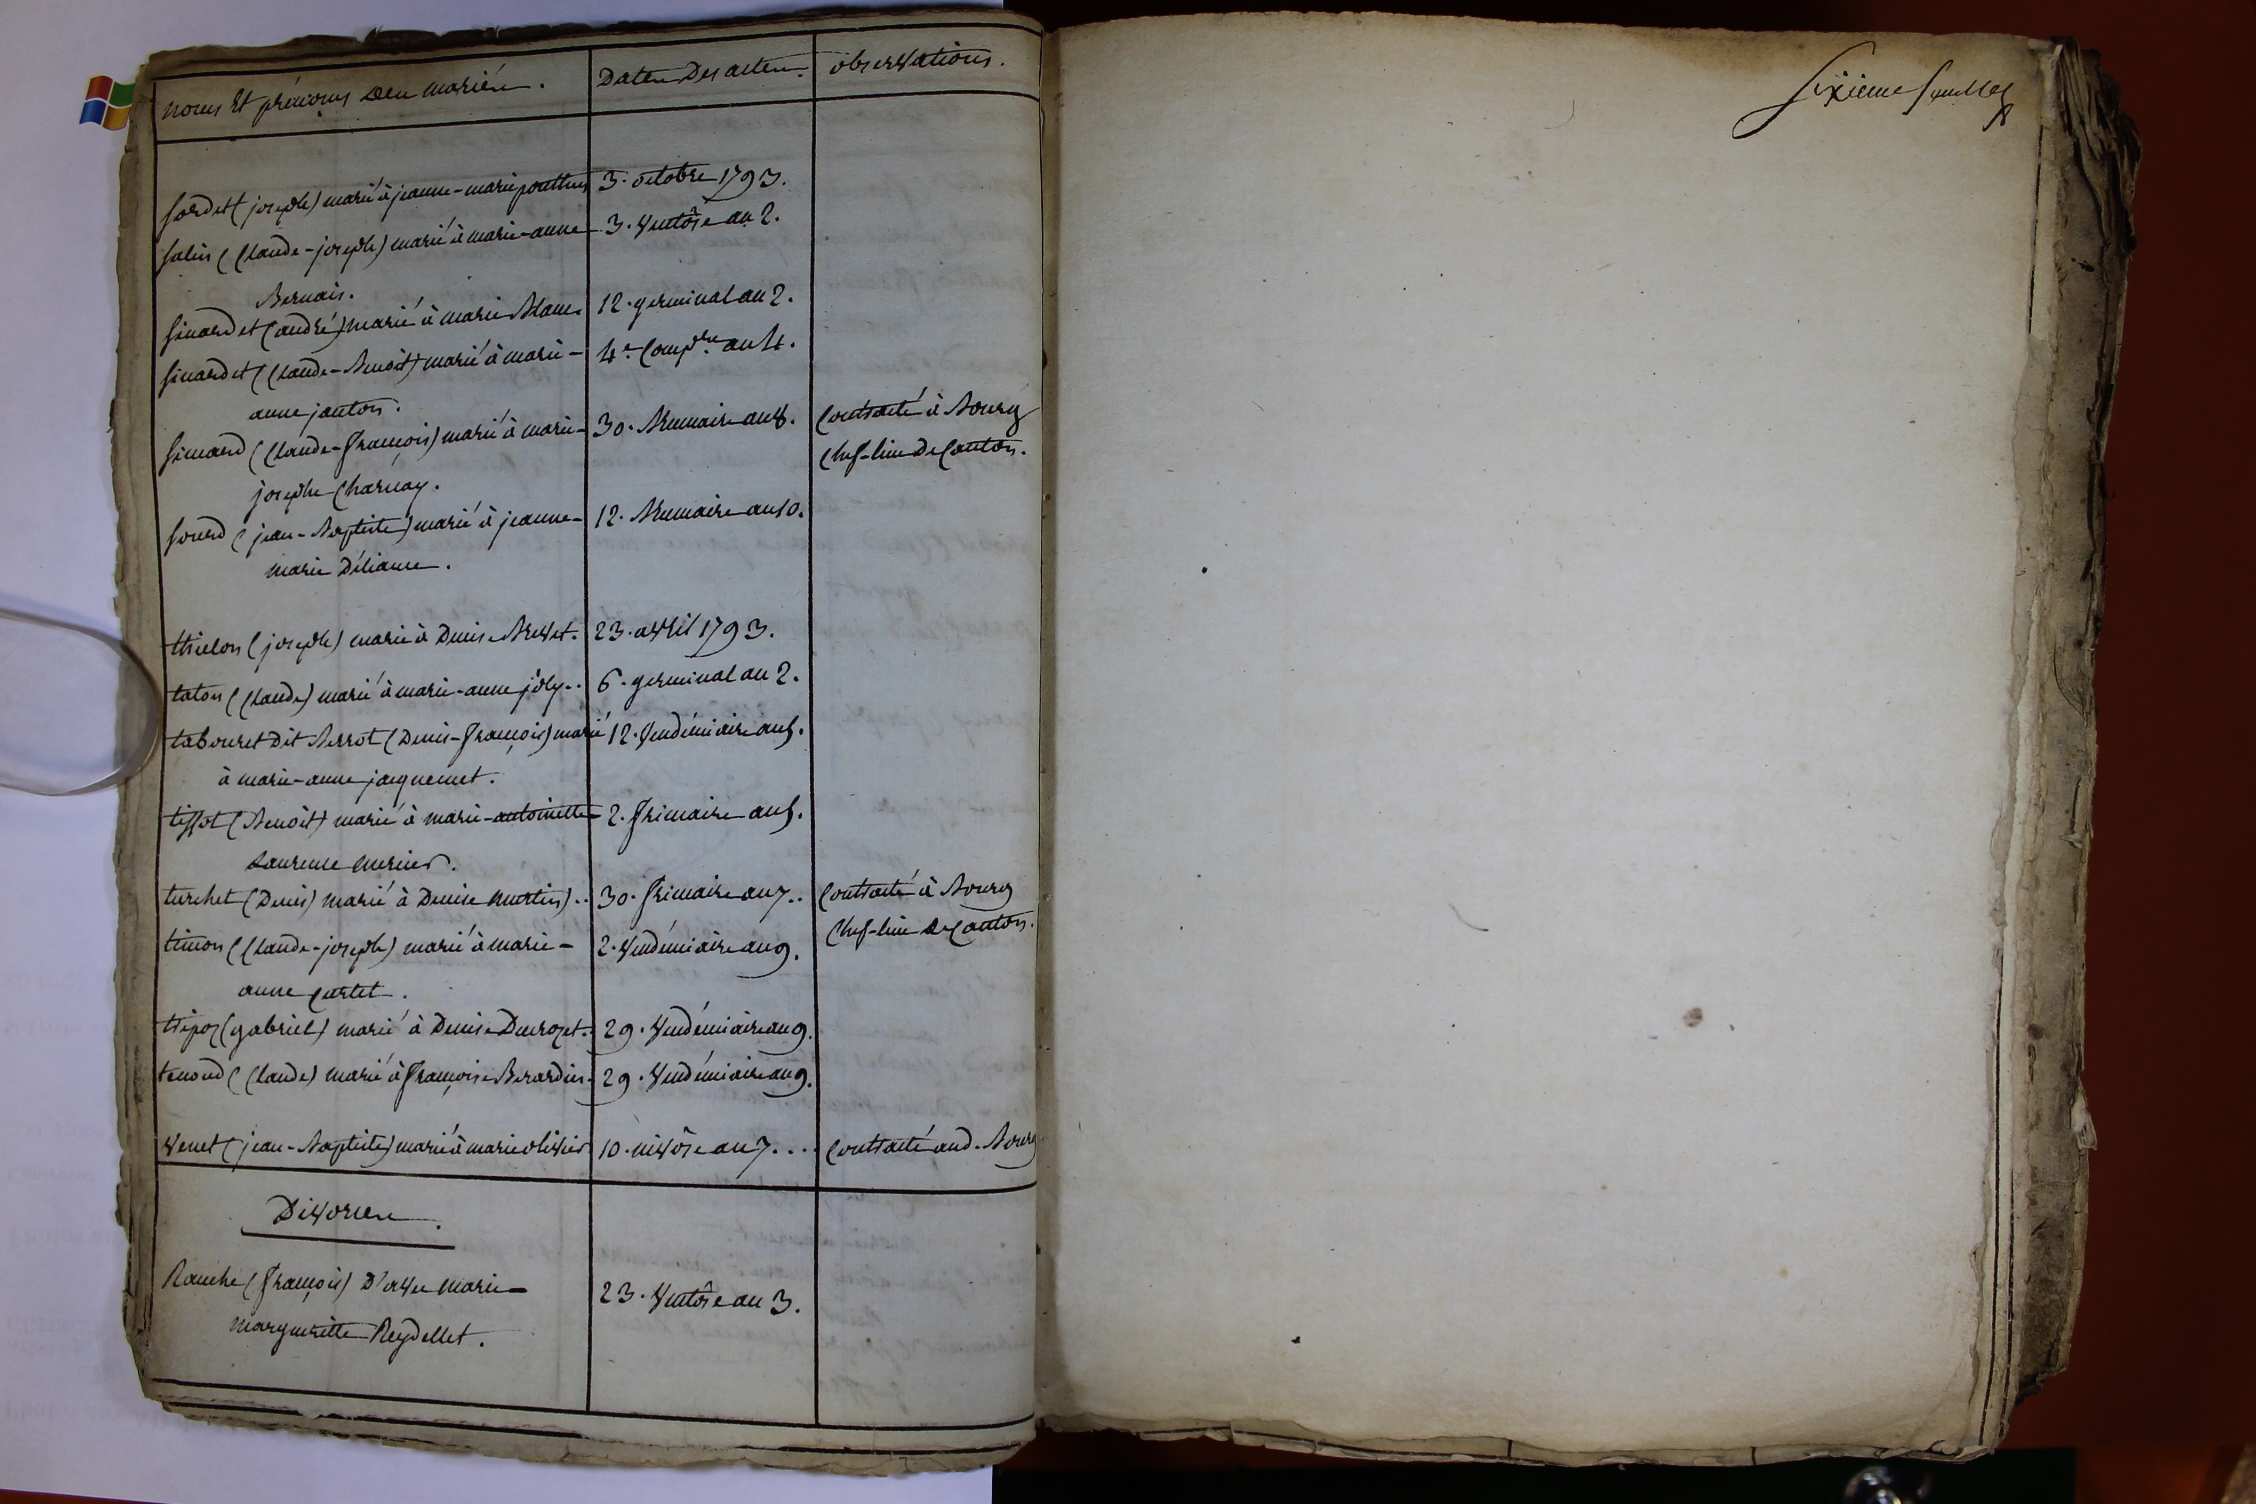 noms Et prénoms Des mariés.
Dates Des actes.
observations.
Sixieme feuillet
Sordet (joseph) marié à jeanne-marie ponthus
3. octobre 1793.
Salin (Claude-joseph) marié à marie-anne
3. Ventôse an 2.
Bernais.
Sinardet (andré) marié à marie Blanc
12. germinal an 2.
Sinardet (Claude-Benoit) marié à marie-
4e. Compre. an 4.
anne janton.
Simard (Claude-François) marié à marie-
30. Brumaire an 8.
Contracté à Bourg
josephe Charnay.
Chef-lieu De Canton.
Sourd (jean-Baptiste) marié à jeanne-
12. Brumaire an 10.
marie Déliance.
thielon (joseph) marié à Denise Brevet.
23. avril 1793.
taton (Claude) marié à marie-anne joly..
6. germinal an 2.
tabouret Dit Perrot (Denis-François) marié
12. Vendémiaire an 5.
à marie-anne jacquemet.
tissot (Benoit) marié à marie-antoinette
2. Frimaire an 5.
Laurence mercier.
turchet (Denis) marié à Denise martin)..
30. Frimaire an 7..
Contracté à Bourg
Chef-lieu De Canton.
timon (Claude-joseph) marié à marie-
2. Vendémiaire an 9.
anne Curtet.
tripoz (gabriel) marié à Denise Ducrozet.
29. Vendémiaire an 9.
tenond (Claude) marié à Françoise Berardin.
29. Vendémiaire an 9.
Venet (jean-Baptiste) marié à marie olivier
10. nivôse an 7....
Contracté aud. Bourg
Divorces.
Rouche (François) D'avec marie-
23. Ventôse an 3.
margueritte Reydellet.